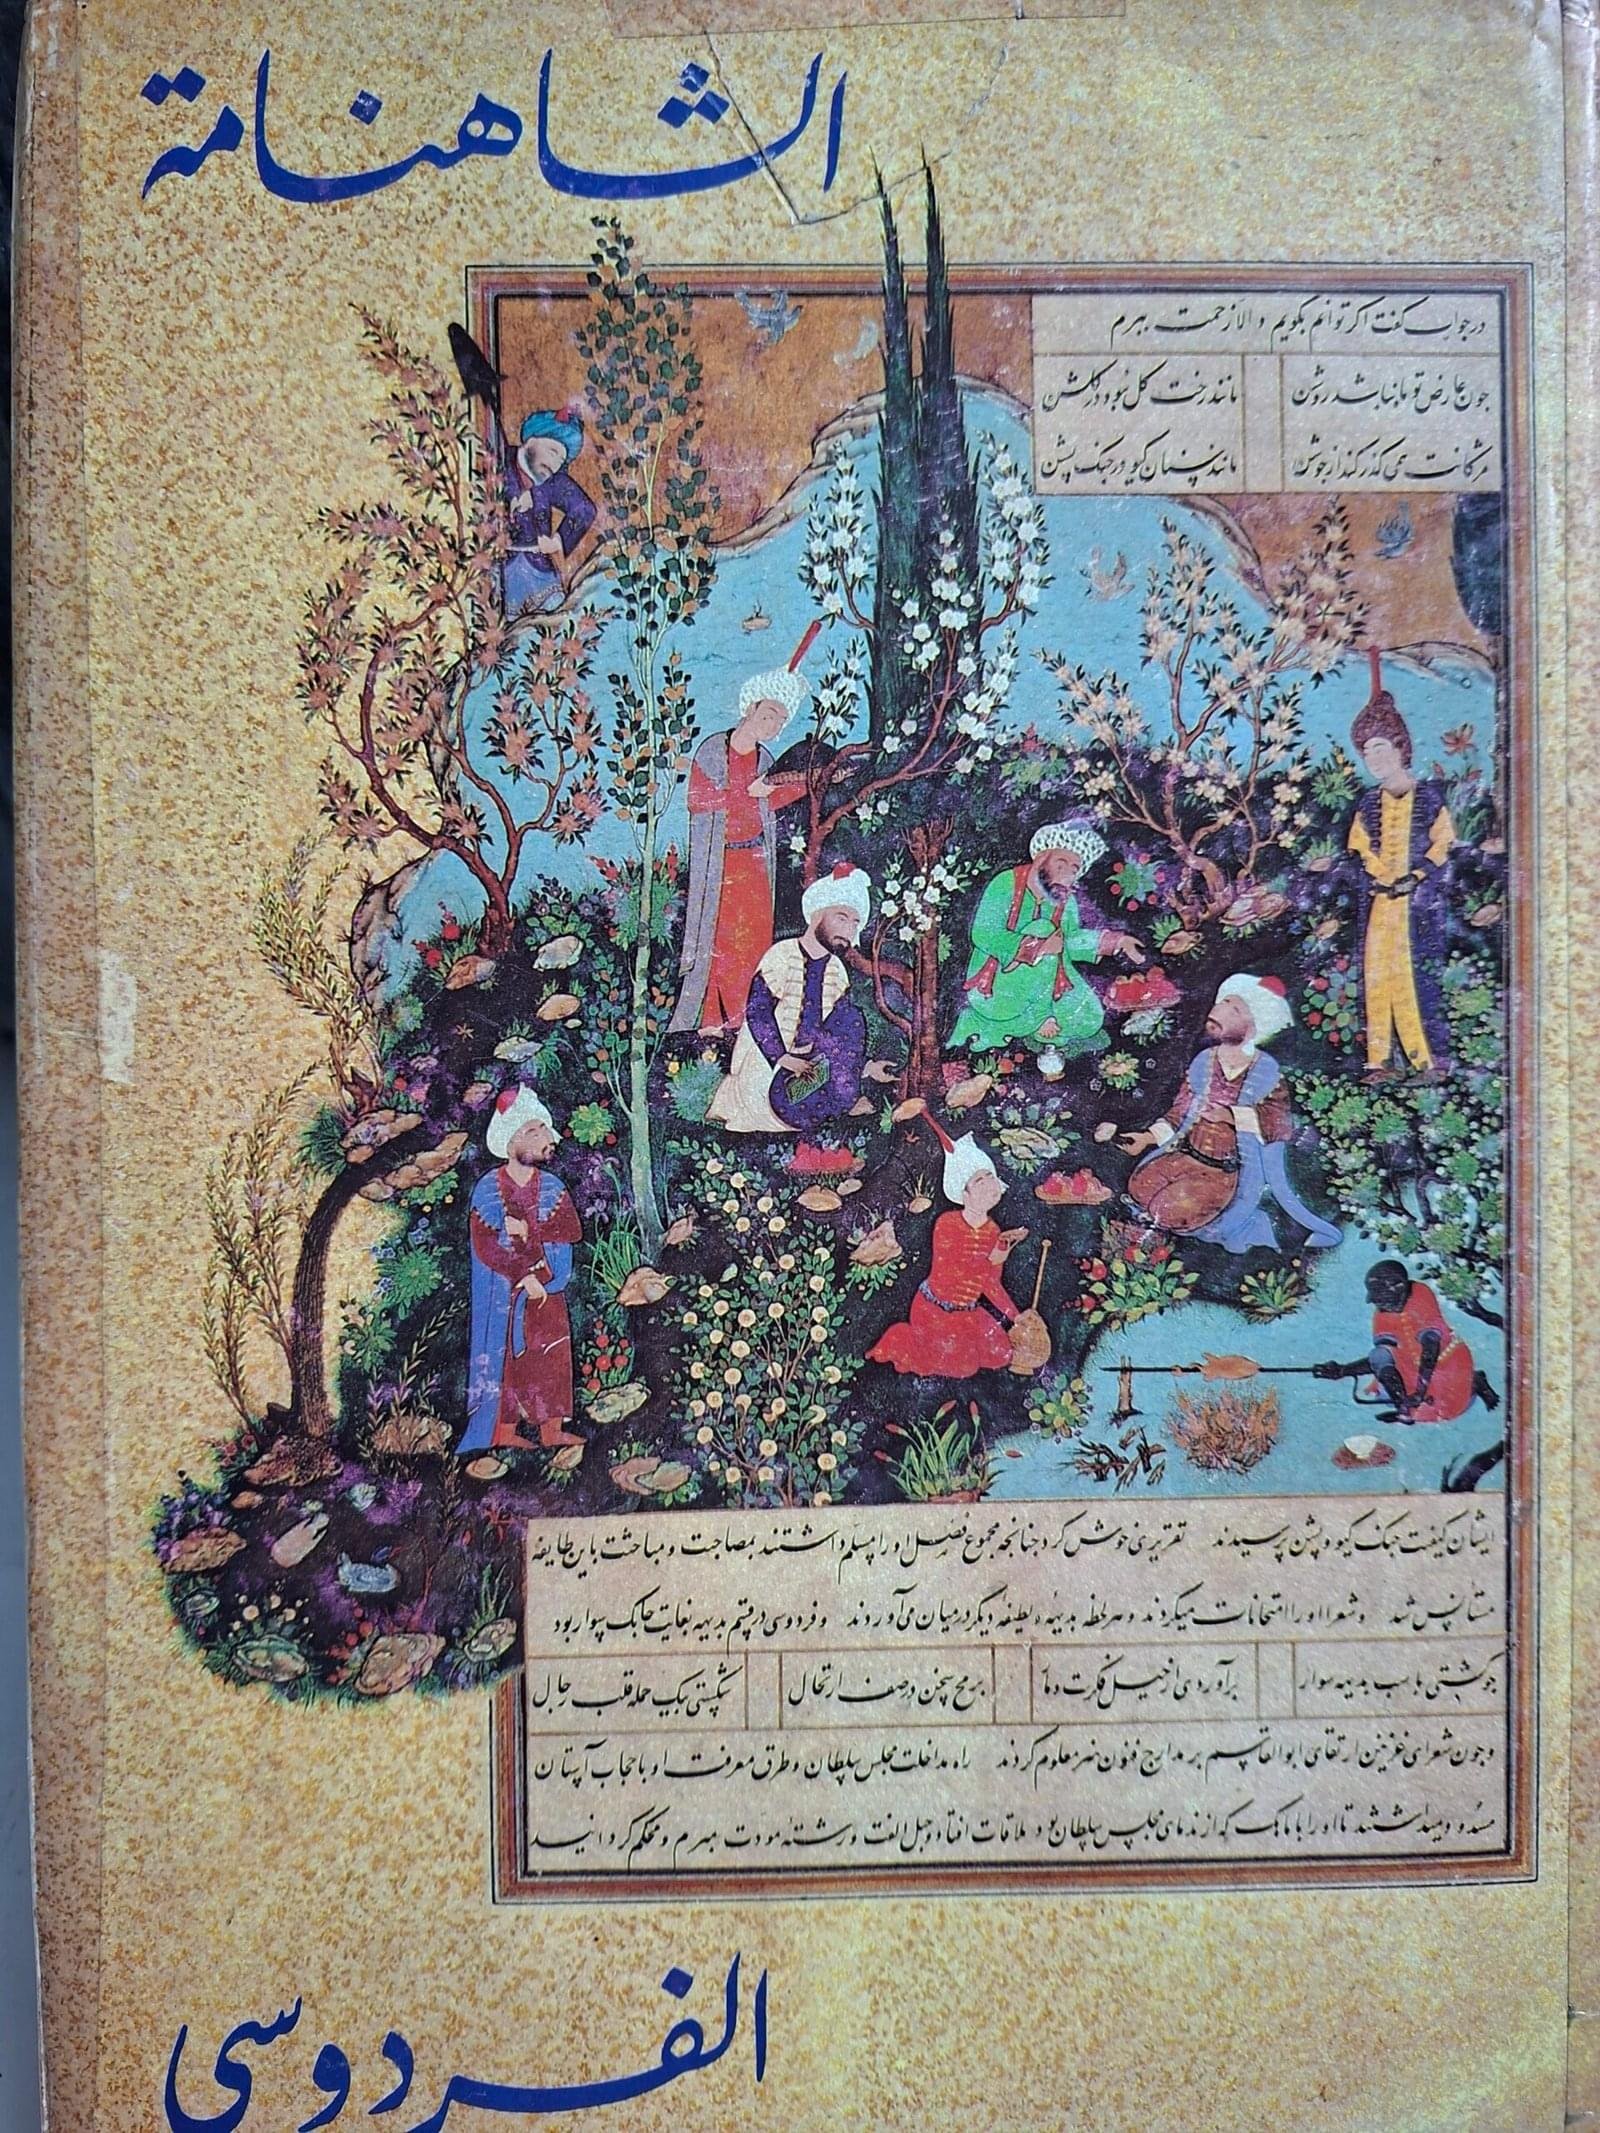 الشاهنامة
در جواب گفت اگر توانم بگویم و الا زحمت ببرم
جون عارض تو ماه نباشد روشن
مانند رخت گل نبود در گلشن
مژگانت همی گذر کند از جوشن
مانند سنان گیو در جنگ پشن
ایشان کیفیت جنگ گیو و پشن پرسیدند تقریری خوش کرد جنانجه مجموع فضل او را مسلم داشتند بمصاحبت و مباحثت باین طایفه
مستأنس شد و شعرا او را امتحانات میکردند و هر لحظه بدیهه و لطیفهٔ دیگر در میان می آوردند و فردوسی در قسم بدیهه بغایت جابک سوار بود
جو گشتی باسب بدیهه سوار
برآوردی از خیل فکرت دمار
برمح سخن در صف ارتجال
شکستی بیک حمله قلب رجال
و جون شعرای غزنین ارتقای ابوالقاسم بر مدارج فنون هنر معلوم کردند راه مداخلت مجلس سلطان و طرق معرفت او با حجاب آستان
مسدود میداشتند تا او را با ماهک که از ندمای مجلس سلطان بود ملاقات افتاد و حبل الفت و رشتهٔ مودت مبرم و محکم گردانید
الفردوسی